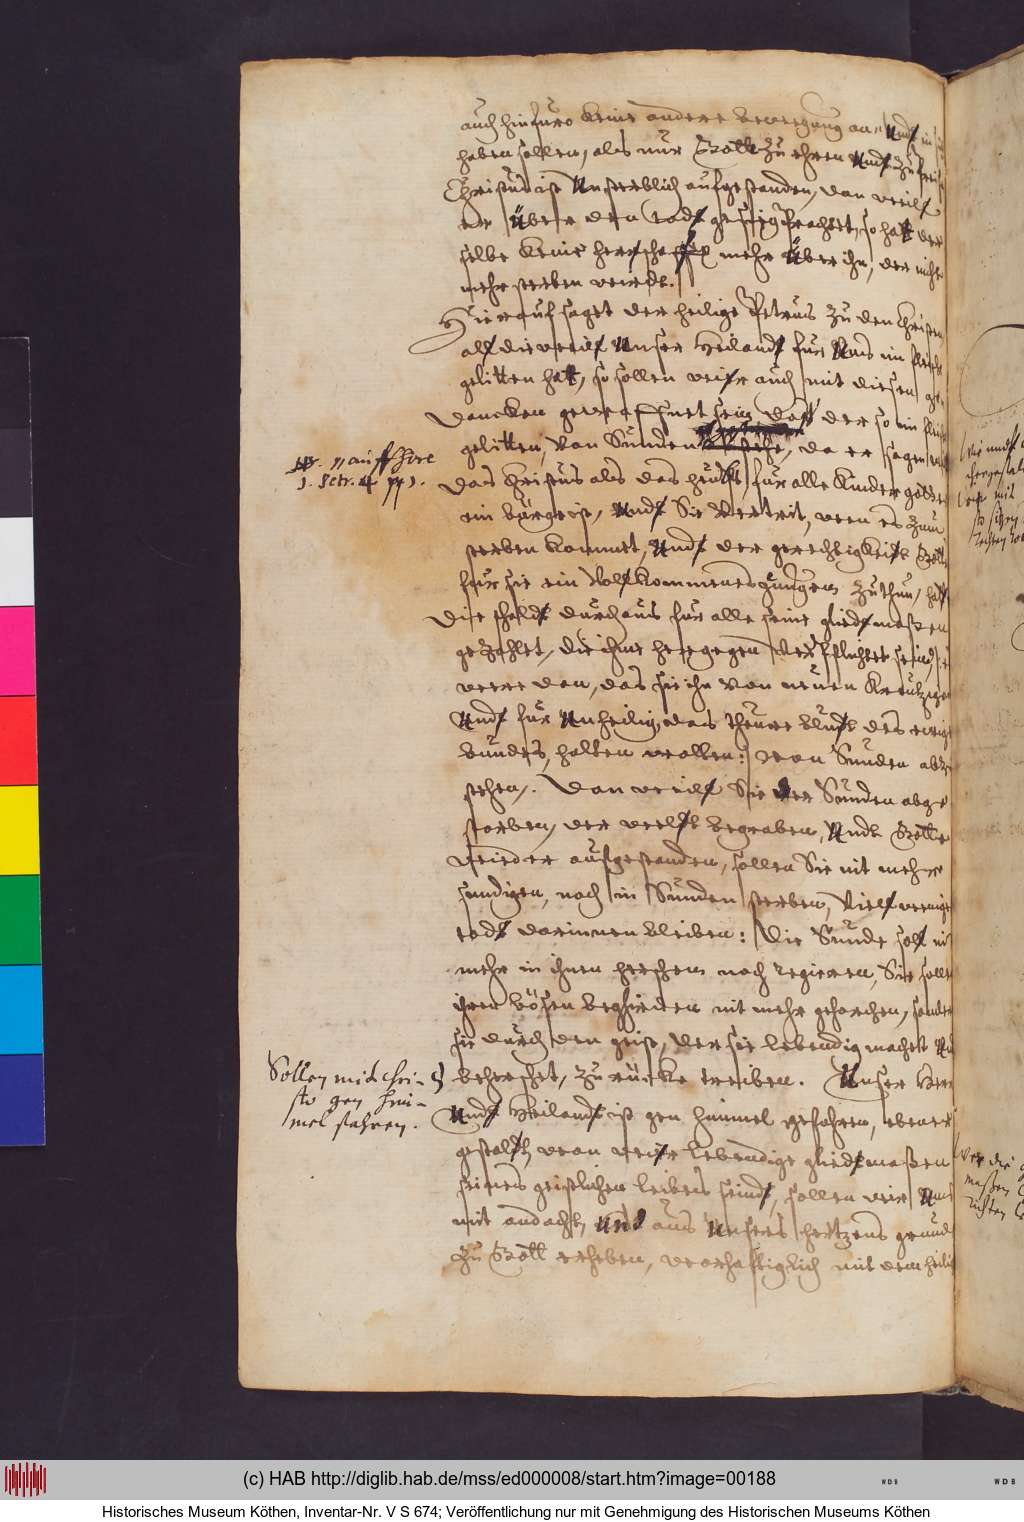 auch hinfuro keine andere bewegung an und in sich
haben sollen, als nur Gott zu ehren undt zu preisen
Christus ist Unsterblich aufgestanden, dan weill
er über den todt gesieg prachtet, so hatt der
selbe keine herrschafft mehr über ihn, der nicht
mehr sterben wirdt.
Hierauf saget der heilige Petrus zu den Christen
all dieweill Unser Heilandt fur Uns im fleisch
gelitten hatt, so sollen wir auch mit diesen ge
dancken gewaffnet sein, das der so im fleisch
gelitten, von Sunden, da er sagen will
Das Christus als das heubt, für alle Kinder gottes
ein bürge ist, Undt Sie Vertrit, wen es zum
sterben kommet, Undt der gerechtigkeit Gottes
fur sie ein Volkommenes gnügen zuthun, hatt
Die schuldt durchaus für alle seine gliedtmaßen
gezahlet, die ihme hergegen Verpflichtet seind, es
were dan, das sie ihn von neuen Kreutzigen
Undt für Unheilig, das theure blutt des ewigen
bundes, halten wollen: von Sunden abzu
stehen. Dan weill Sie der Sunden abge
storben, der weldt begraben, Undt Gotte
wieder aufgestanden, sollen Sie nit mehr
sundigen, noch in Sunden sterben, Viell weniger
todt darinnen bleiben: Die Sunde soll nit
mehr in ihnen herschen noch regieren, Sie sollen
ihren bösen begierden nit mehr gehorchen, sondern
sie durch den geist, der sie lebendig machet Und
beherschet, zu rücke treiben. Unser Herr
Undt Heilandt ist gen himmel gefahren, ebener
gestaldt, wan wir lebendige gliedtmaßen
seines geistlichen leibes seindt, sollen wir Uns
mit andacht, Und aus Unsers hertzens grund
zu Gott erheben, warhafftiglich mit dem heilig
auffhöre
1. Petr. 4 v 1.
Sollen mit Chri-
sto gen him-
mel fahren.
(c) HAB http://diglib.hab.de/mss/ed000008/start.htm?image=00188
WDB
WDB
Historisches Museum Köthen, Inventar-Nr. V S 674; Veröffentlichung nur mit Genehmigung des Historischen Museums Köthen